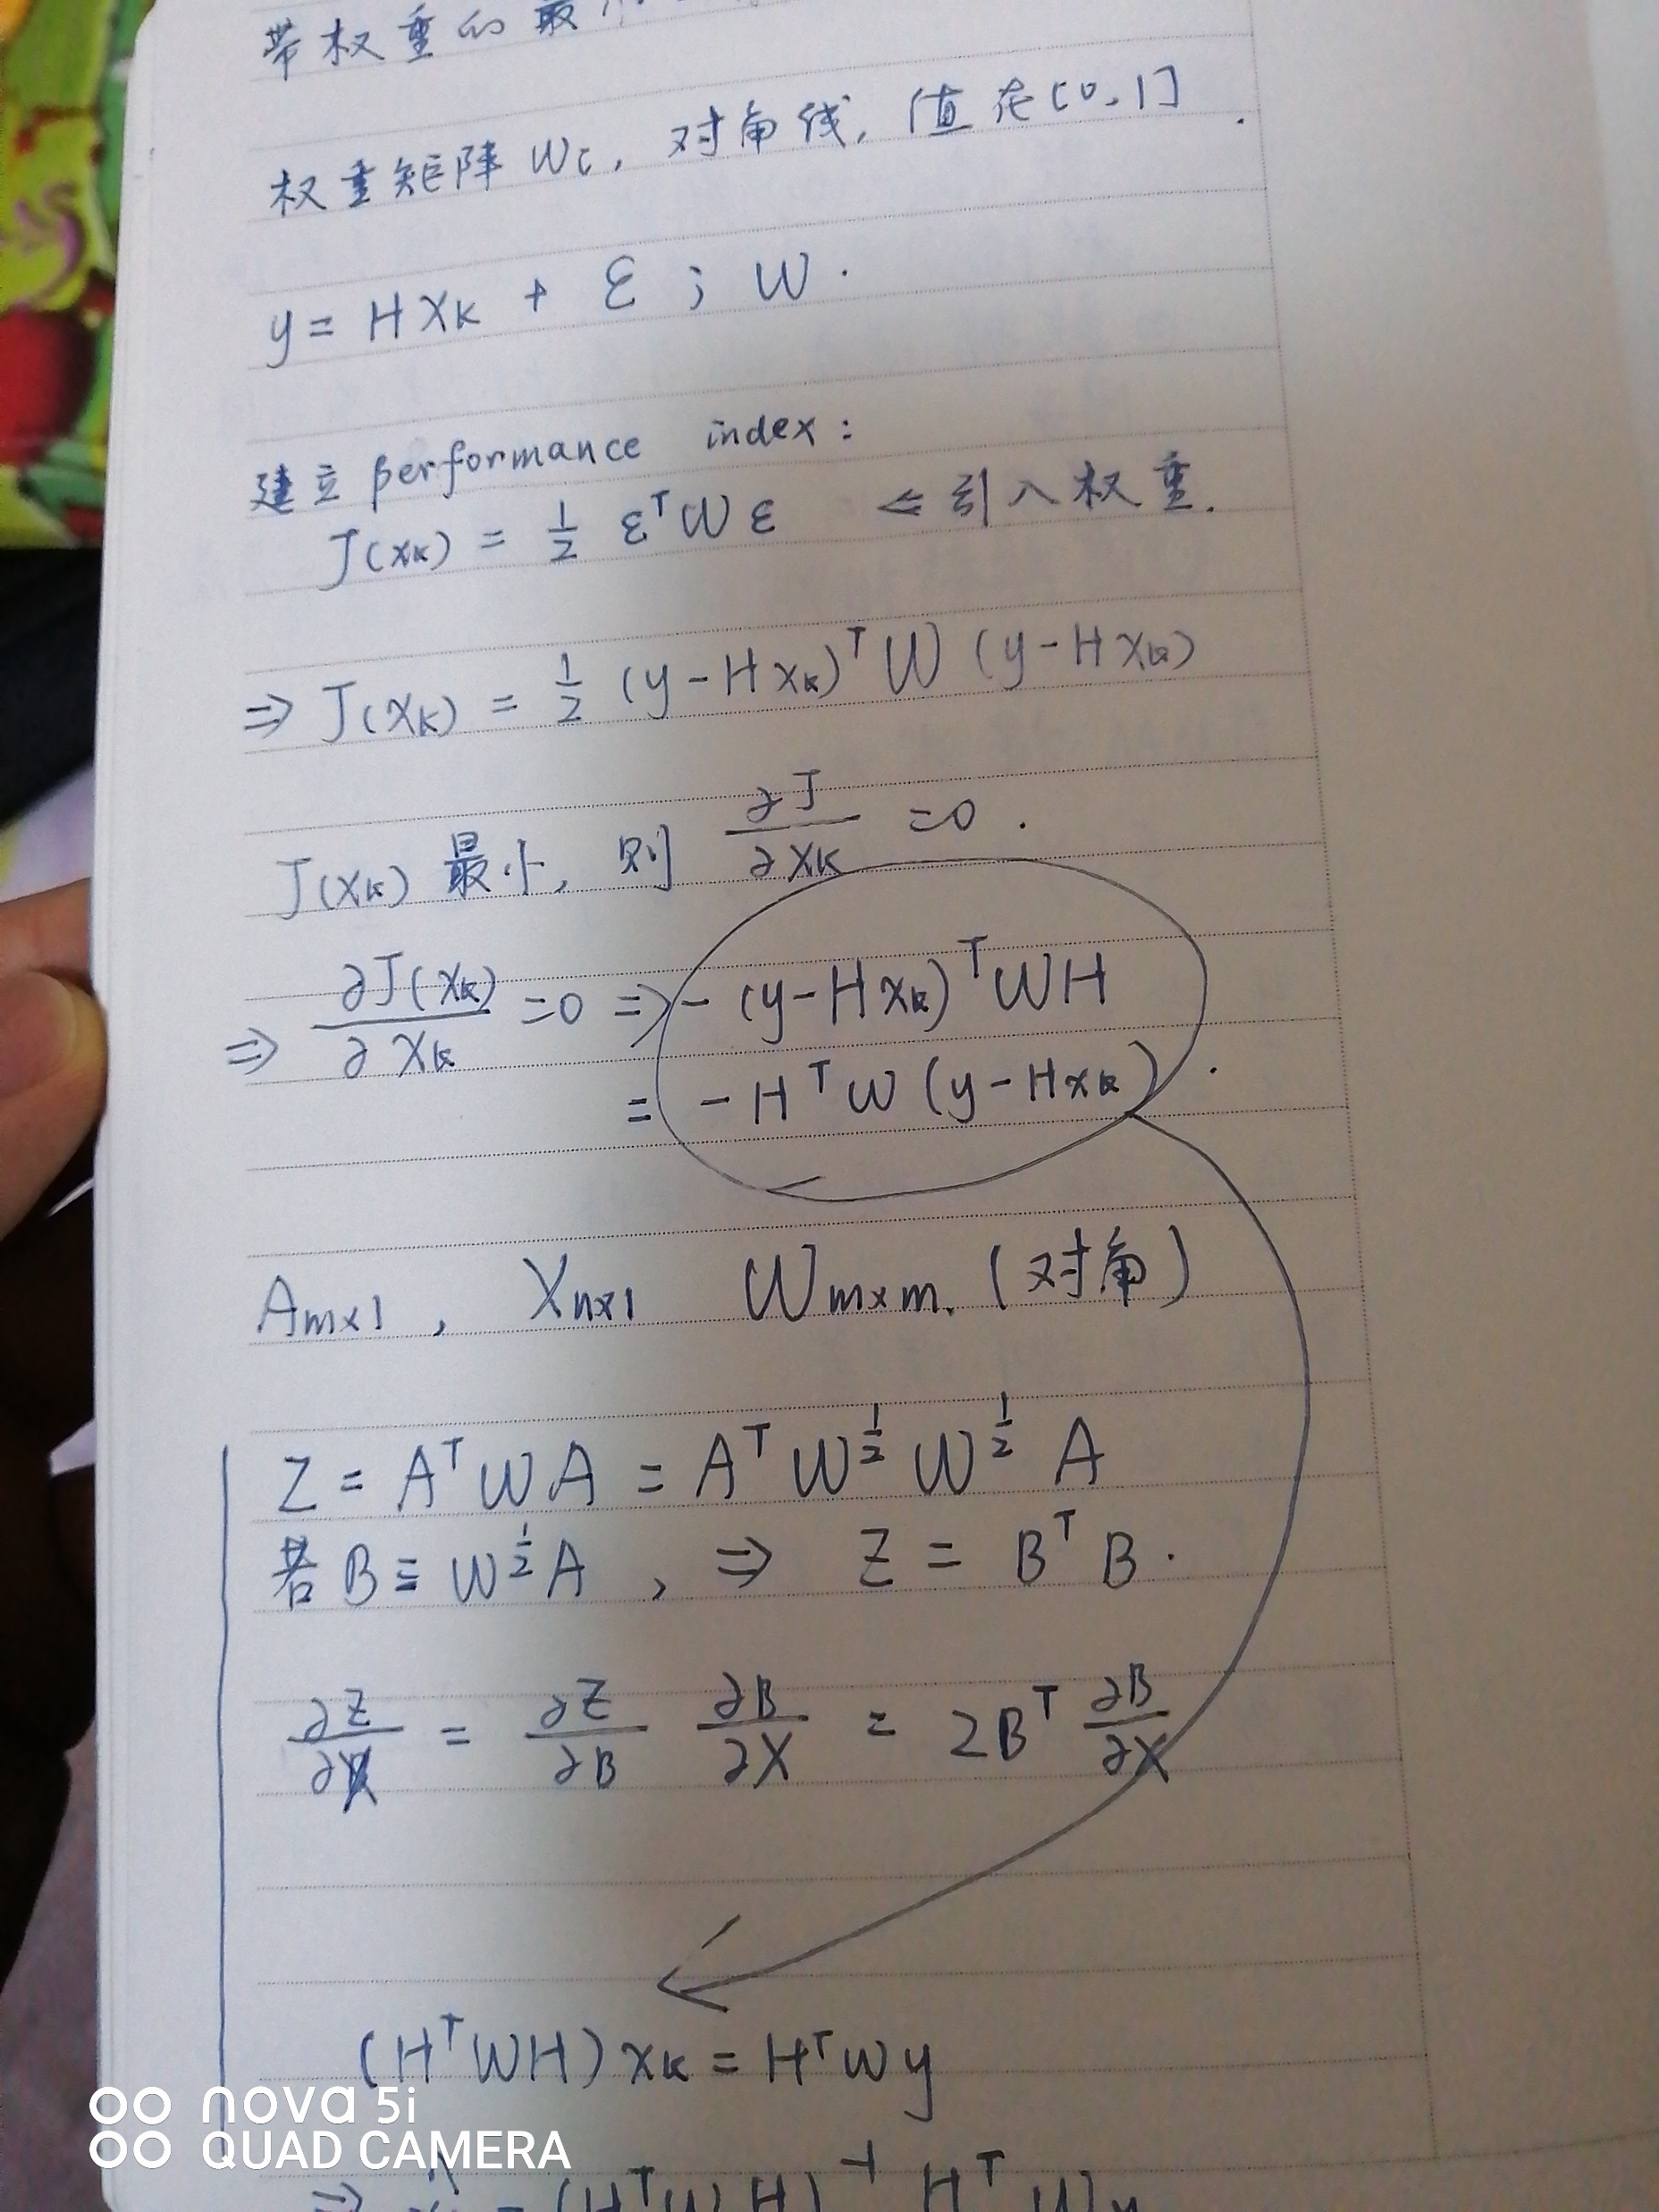 带权重的最
权重矩阵 Wi, 对角线, 值在[0,1].
y = H Xk + ε ; W.
建立 performance index:
J(xk) = 1/2 ε^T W ε ⇐ 引入权重.
⇒ J(Xk) = 1/2 (y - H Xk)^T W (y - H Xk)
J(Xk) 最小, 则 ∂J/∂Xk = 0.
⇒ ∂J(Xk)/∂Xk = 0 ⇒ - (y - H Xk)^T W H
= - H^T W (y - H Xk).
A m×1, X n×1 W m×m. (对角)
Z = A^T W A = A^T W^1/2 W^1/2 A
若 B ≡ W^1/2 A, ⇒ Z = B^T B.
∂Z/∂X = ∂Z/∂B ∂B/∂X = 2B^T ∂B/∂X
(H^T W H) xk = H^T W y
⇒ = (H^T W H)^-1 H^T W y
nova 5i
QUAD CAMERA